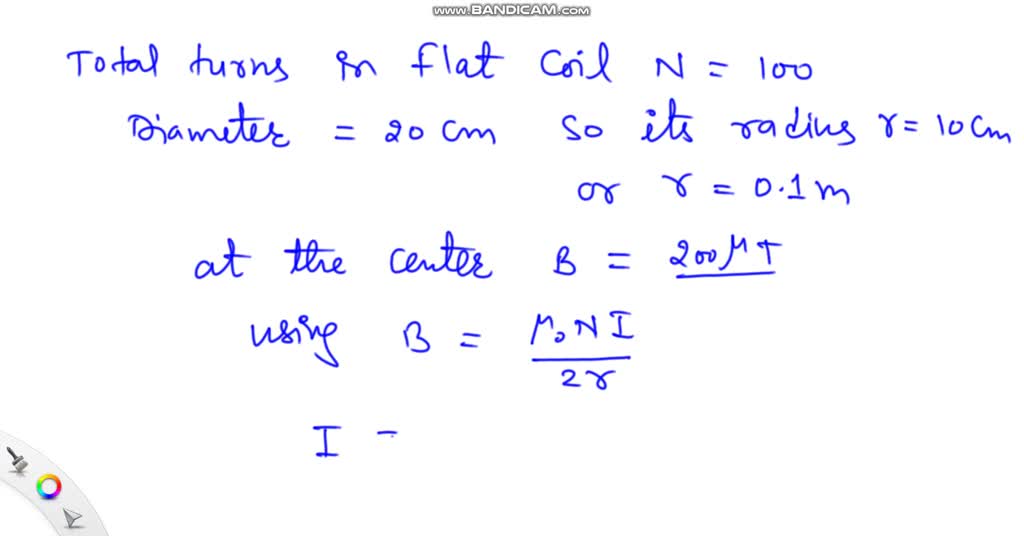 www.BANDICAM.com
Total turns in flat coil N = 100
Diameter = 20 cm so its radius r = 10 cm
or r = 0.1 m
at the center B = 200 μT
using B = μ₀NI / 2r
I =